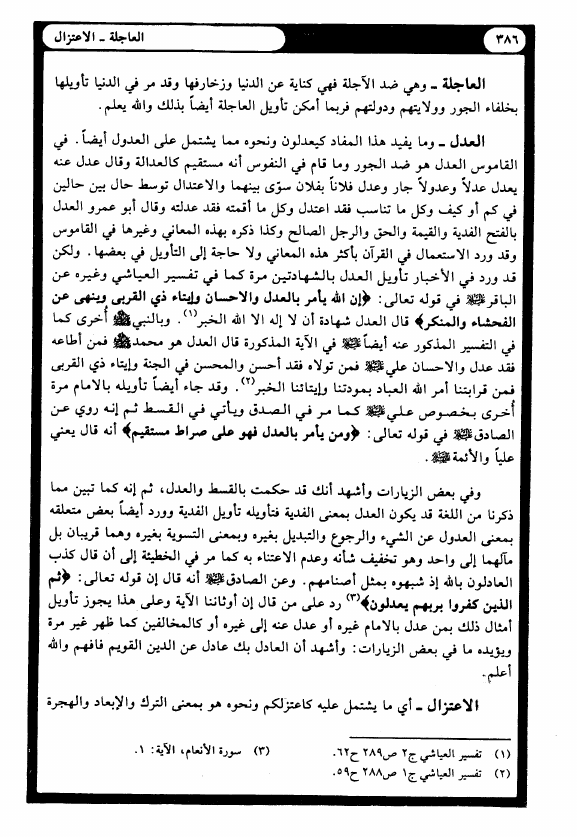 ٣٨٦
العاجلة ـ الاعتزال
العاجلة ـ وهي ضد الآجلة فهي كناية عن الدنيا وزخارفها وقد مر في الدنيا تأويلها
بخلفاء الجور وولايتهم ودولتهم فربما أمكن تأويل العاجلة أيضاً بذلك والله يعلم.
العدل ـ وما يفيد هذا المفاد كيعدلون ونحوه مما يشتمل على العدول أيضاً. في
القاموس العدل هو ضد الجور وما قام في النفوس أنه مستقيم كالعدالة وقال عدل عنه
يعدل عدلاً وعدولاً جار وعدل فلاناً بفلان سوّى بينهما والاعتدال توسط حال بين حالين
في كم أو كيف وكل ما تناسب فقد اعتدل وكل ما أقمته فقد عدلته وقال أبو عمرو العدل
بالفتح الفدية والقيمة والحق والرجل الصالح وكذا ذكره بهذه المعاني وغيرها في القاموس
وقد ورد الاستعمال في القرآن بأكثر هذه المعاني ولا حاجة إلى التأويل في بعضها. ولكن
قد ورد في الأخبار تأويل العدل بالشهادتين مرة كما في تفسير العياشي وغيره عن
الباقر ﷺ في قوله تعالى: ﴿إن الله يأمر بالعدل والاحسان وإيتاء ذي القربى وينهى عن
الفحشاء والمنكر﴾ قال العدل شهادة أن لا إله الا الله الخبر(١). وبالنبي ﷺ أُخرى كما
في التفسير المذكور عنه أيضاً ﷺ في الآية المذكورة قال العدل هو محمد ﷺ فمن أطاعه
فقد عدل والاحسان علي ﷺ فمن تولاه فقد أحسن والمحسن في الجنة وإيتاء ذي القربى
فمن قرابتنا أمر الله العباد بمودتنا وإيتائنا الخبر(٢). وقد جاء أيضاً تأويله بالامام مرة
أُخرى بخصوص علي ﷺ كما مر في الصدق ويأتي في القسط ثم إنه روي عن
الصادق ﷺ في قوله تعالى: ﴿ومن يأمر بالعدل فهو على صراط مستقيم﴾ أنه قال يعني
علياً والأئمة ﷺ.
وفي بعض الزيارات وأشهد أنك قد حكمت بالقسط والعدل، ثم إنه كما تبين مما
ذكرنا من اللغة قد يكون العدل بمعنى الفدية فتأويله تأويل الفدية وورد أيضاً بعض متعلقه
بمعنى العدول عن الشيء والرجوع والتبديل بغيره وبمعنى التسوية بغيره وهما قريبان بل
مآلهما إلى واحد وهو تخفيف شأنه وعدم الاعتناء به كما مر في الخطيئة إلى أن قال كذب
العادلون بالله إذ شبهوه بمثل أصنامهم. وعن الصادق ﷺ أنه قال إن قوله تعالى: ﴿ثم
الذين كفروا بربهم يعدلون﴾(٣) رد على من قال إن أوثاننا الآية وعلى هذا يجوز تأويل
أمثال ذلك بمن عدل بالامام غيره أو عدل عنه إلى غيره أو كالمخالفين كما ظهر غير مرة
ويؤيده ما في بعض الزيارات: وأشهد أن العادل بك عادل عن الدين القويم فافهم والله
أعلم.
الاعتزال ـ أي ما يشتمل عليه كاعتزلكم ونحوه هو بمعنى الترك والإبعاد والهجرة
(١) تفسير العياشي ج٢ ص٢٨٩ ح٦٢.
(٢) تفسير العياشي ج١ ص٢٨٨ ح٥٩.
(٣) سورة الأنعام، الآية: ١.